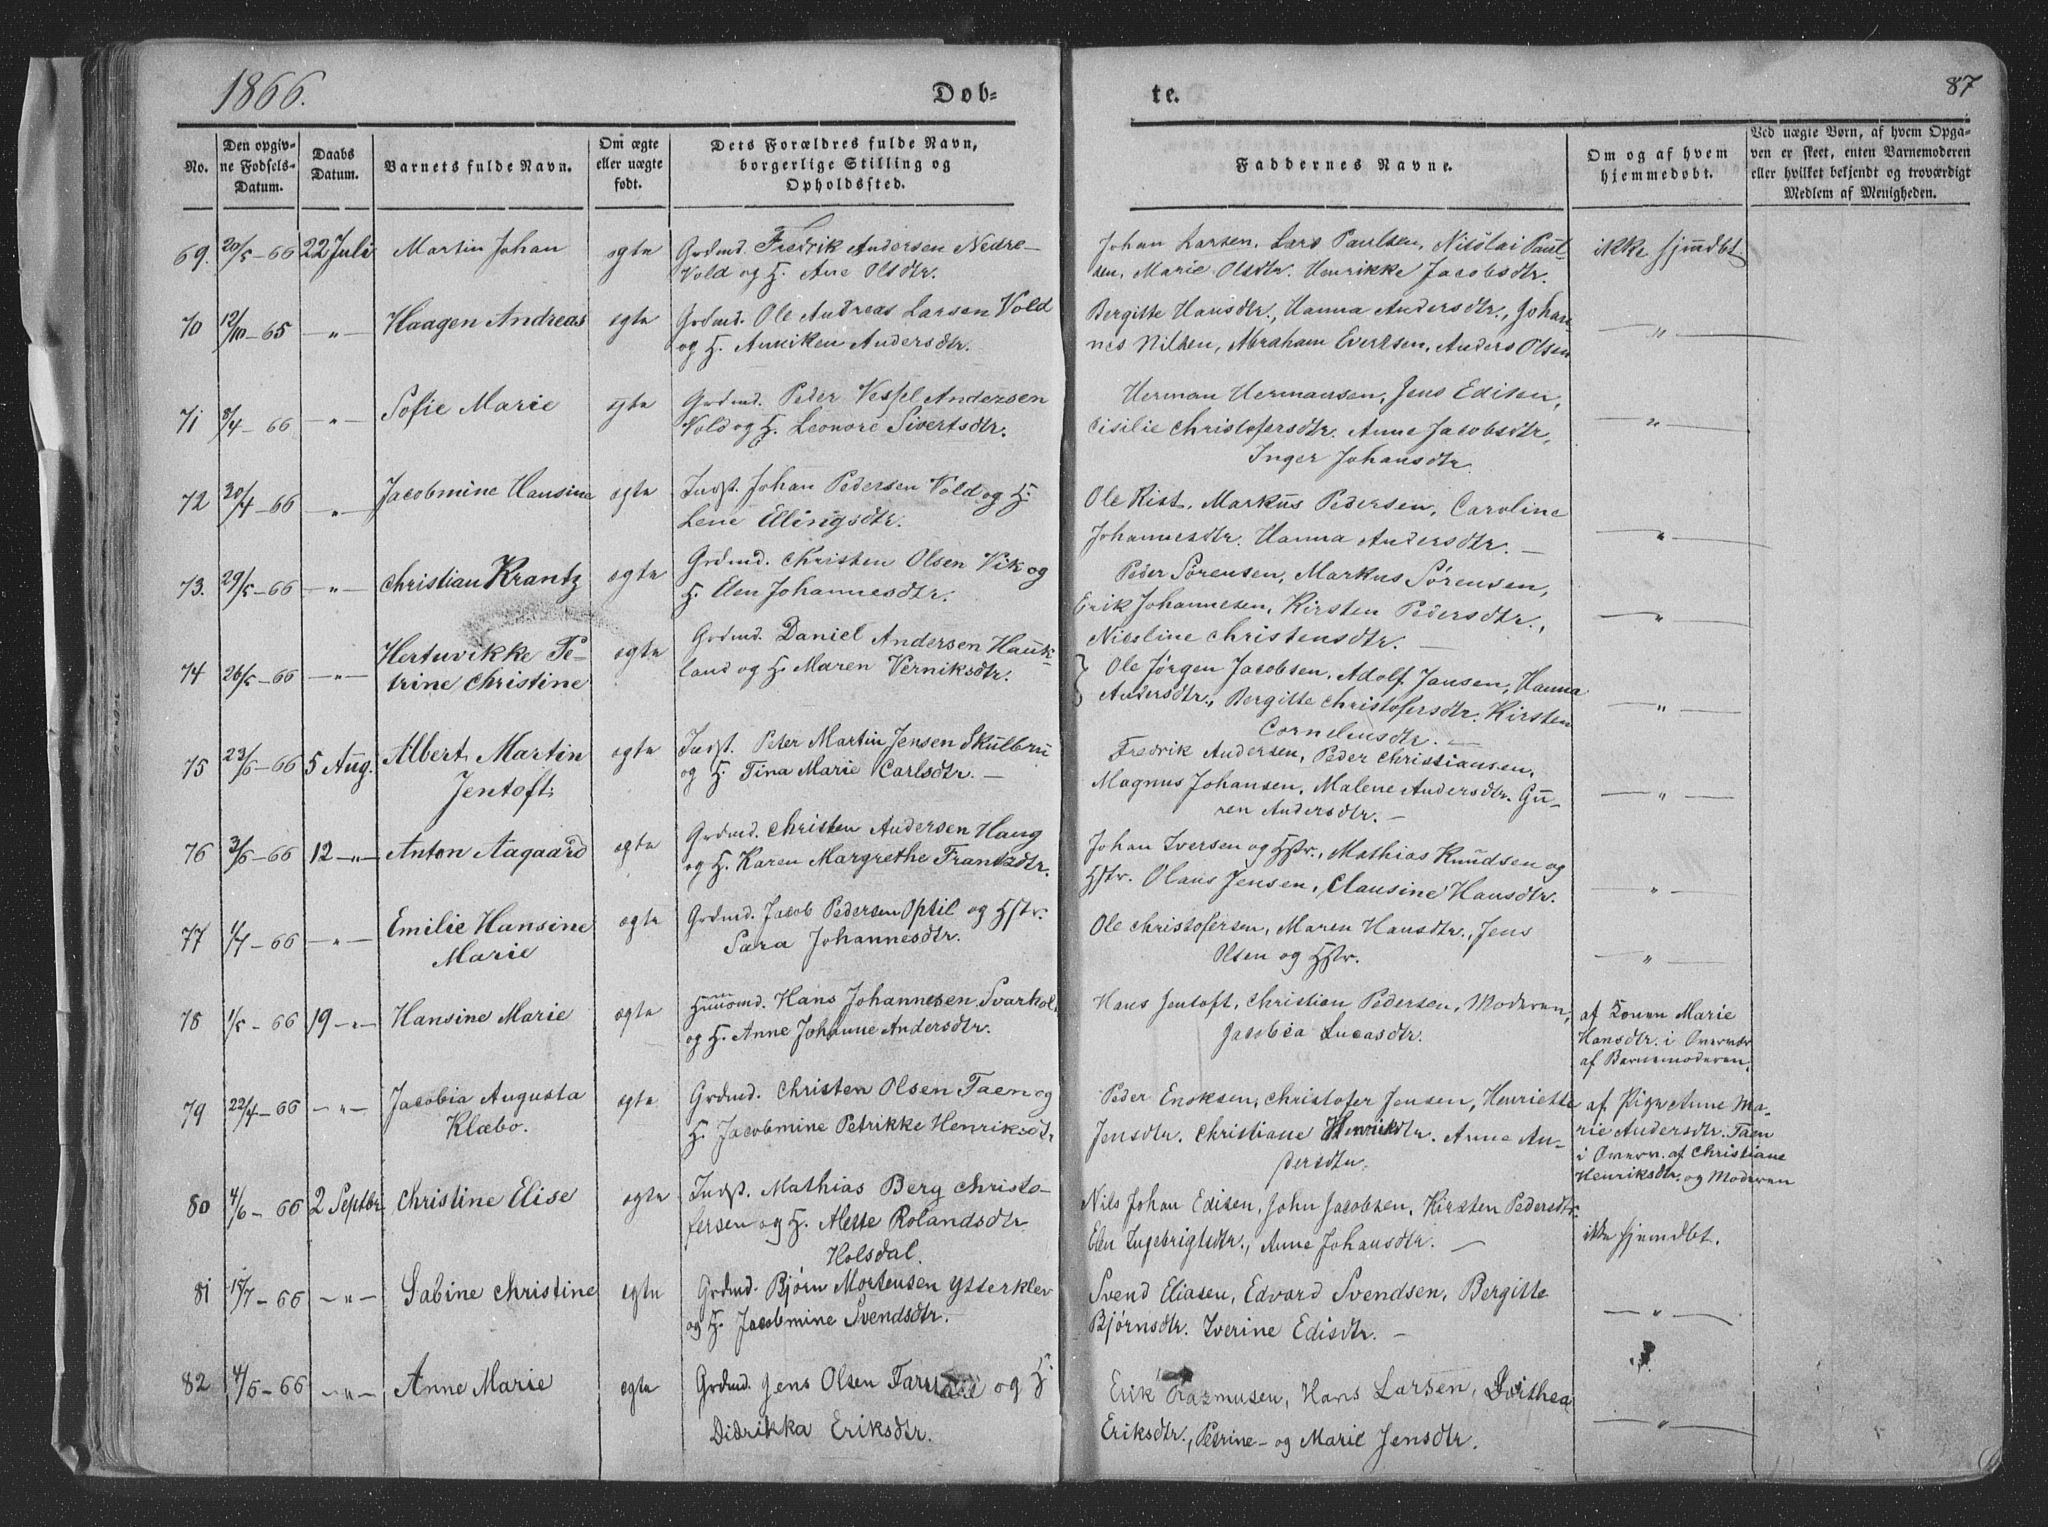 1866.
Døb-
te.
87
No.
Den opgiv-
ne Fødsels-
Datum.
Daabs
Datum.
Barnets fulde Navn.
Om ægte
eller uægte
født.
Dets Forældres fulde Navn,
borgerlige Stilling og
Opholdssted.
Faddernes Navne.
Om og af hvem
hjemmedøbt.
Ved uægte Børn, af hvem Opga-
ven er skeet, enten Barnemoderen
eller hvilket bekjendt og troværdigt
Medlem af Menigheden.
69. 20/5-66 22 Juli Martin Johan ægte Grdmd. Fredrik Andersen Nedre-
Vold og H. Ane Olsdtr.
Johan Larsen, Lars Paulsen, Nikolai Paul-
sen, Marie Olsdtr. Henrikke Jacobsdtr.
ikke hjmdbt
70 12/10-65 -"- Haagen Andreas ægte Grdmd. Ole Andreas Larsen Vold
og H. Anniken Andersdtr.
Bergitte Hansdtr., Hanna Andersdtr., Johan
nes Nilsen, Abraham Evertsen, Anders Olsen
-"-
71 8/4-66 -"- Sofie Marie ægte Grdmd. Peder Vessel Andersen
Vold og H. Leonore Sivertsdtr.
Herman Hermansen, Jens Edisen,
Cisilie Christofersdtr. Anne Jacobsdtr,
Inger Johansdtr
-"-
72 30/4-66 -"- Jacobmine Hansine ægte Indst. Johan Pedersen Vold og H.
Lene Ellingsdtr.
Ole Rist, Markus Pedersen, Caroline
Johannesdtr. Hanna Andersdtr. -
-"-
73. 29/5-66 -"- Christian Krantz ægte Grdmd. Christen Olsen Vik og
H. Elen Johannesdtr.
Peder Sørensen, Markus Sørensen,
Erik Johannesen, Kirsten Pedersdtr.,
Nilsline Christensdtr. -
-"-
74 26/5-66 -"- Hertuvikke Pe-
trine Christine
ægte Grdmd. Daniel Andersen Hauk-
land og H. Maren Verniksdtr.
Ole Jørgen Jacobsen, Adolf Jansen, Hanna
Andersdtr., Bergitte Christofersdtr. Kirsten
Corneliusdtr. -
-"-
75 23/5-66 5 Aug. Albert Martin
Jentoft
ægte Indst. Peter Martin Jensen Skulbru
og H. Tina Marie Carlsdtr. -
Fredrik Andersen, Peder Christiansen,
Magnus Johansen, Malene Andersdtr. Gu-
ren Andersdtr. -
-"-
76 2/5-66 12 -"- Anton Aagaard ægte Grdmd. Christen Andersen Haug
og H. Karen Margrethe Frantzdtr.
Johan Iversen og Hstr., Mathias Knudsen og
Hstr. Olaus Jensen, Clausine Hansdtr.
-"-
77 1/7-66 -"- Emilie Hansine
Marie
ægte Grdmd. Jacob Pedersen Optil og Hstr.
Sara Johannesdtr.
Ole Christofersen, Maren Hansdtr., Jens
Olsen og Hstr.
-"-
78 1/5-66 19 -"- Hansine Marie ægte Huusmd. Hans Johannesen Svarhol.
og H. Anne Johanne Andersdtr.
Hans Jentoft, Christian Pedersen, Moderen,
Jacobia Lucasdtr.
af Konen Marie
Hansdtr. i Overvær
af Barnemoderen.
79 22/4-66 -"- Jacobia Augusta
Klæbo.
ægte Grdmd. Christen Olsen Taen og
H. Jacobmine Petrikke Henriksdtr
Peder Enoksen, Christofer Jensen, Henriette
Jensdtr. Christiane Henriksdtr. Anne An-
dersdtr.
af Pige Anne Ma-
rie Andersdtr. Taen
i Overv. af Christiane
Henriksdtr. og Moderen
80 4/6-66 2 Septbr Christine Elise ægte Indst. Mathias Berg Christo-
fersen og H. Alette Rolandsdtr
Holsdal.
Nils Johan Edisen, John Jacobsen, Kirsten Pedersdtr.
Elen Ingebrigtsdtr., Anne Johansdtr. -
ikke hjemdbt.
81 15/7-66 -"- Sabine Christine ægte Grdmd. Bjørn Mortensen Ytterklev
og H. Jacobmine Svendsdtr. -
Svend Eliasen, Edvard Svendsen, Bergitte
Bjørnsdtr. Iverine Edisdtr. -
-"-
82 4/5-66 -"- Anne Marie ægte Grdmd. Jens Olsen og H.
Didrikka Eriksdtr.
Erik Rasmusen, Hans Larsen, Dorthea
Eriksdtr., Petrine- og Marie Jensdtr.
-"-